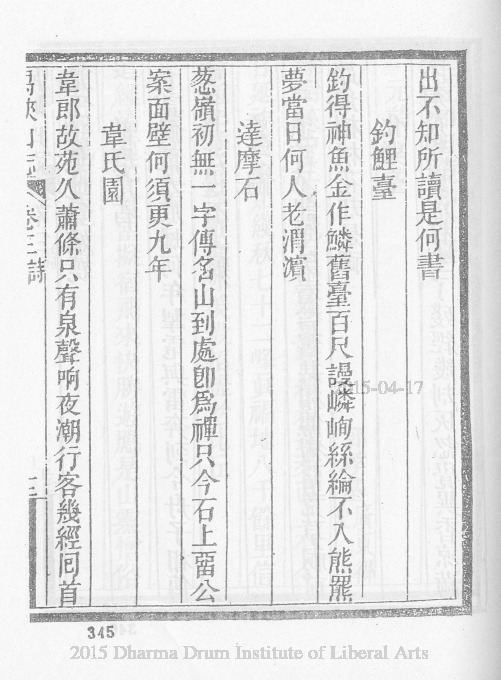 出不知所讀是何書
釣鯉臺
釣得神魚金作鱗舊臺百尺謾嶙峋絲綸不入熊羆
夢當日何人老渭濱
達摩石
葱嶺初無一字傳名山到處卽爲禪只今石上畱公
案面壁何須更九年
韋氏園
韋郎故苑久蕭條只有泉聲响夜潮行客幾經囘首
禺峽山志 卷三 詩
2015-04-17
345
2015 Dharma Drum Institute of Liberal Arts